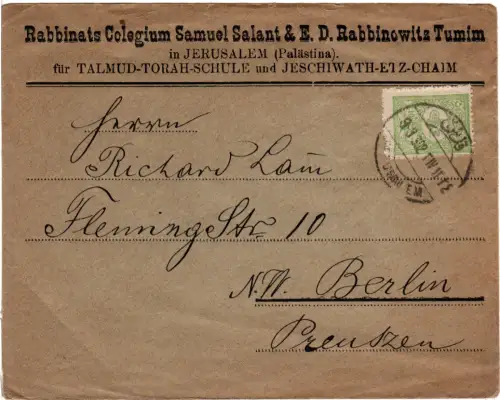 Rabbinats Colegium Samuel Salant & E. D. Rabbinowitz Tumim
in JERUSALEM (Palästina).
für TALMUD-TORAH-SCHULE und JESCHIWATH-ETZ-CHAIM
Herrn
Richard Lam
Fleming Str. 10
N.W. Berlin
Preußen